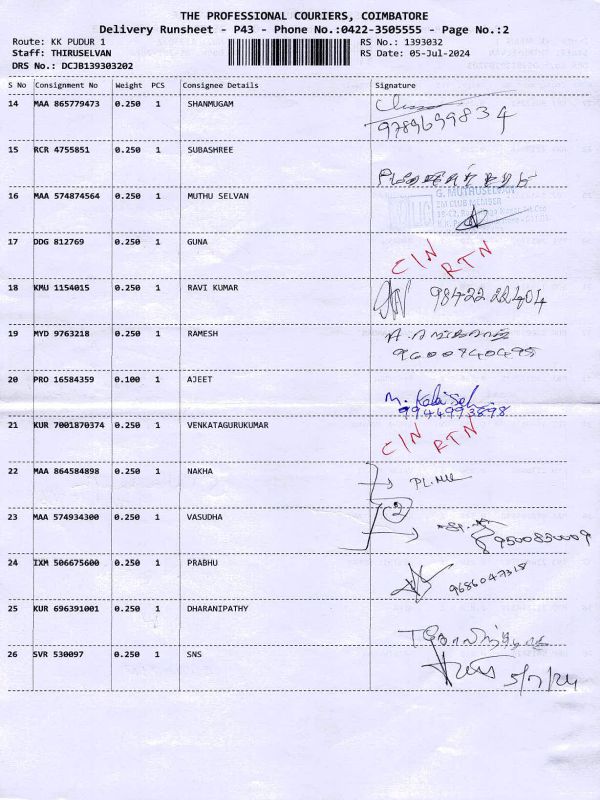 THE PROFESSIONAL COURIERS, COIMBATORE
Delivery Runsheet - P43 - Phone No.:0422-3505555 - Page No.:2
Route: KK PUDUR 1 RS No.: 1393032
Staff: THIRUSELVAN RS Date: 05-Jul-2024
DRS No.: DCJB139303202
S No Consignment No Weight PCS Consignee Details Signature
14 MAA 865779473 0.250 1 SHANMUGAM
9789699834
15 RCR 4755851 0.250 1 SUBASHREE
16 MAA 574874564 0.250 1 MUTHU SELVAN
G. MUTHUSELVAN
ZM CLUB MEMBER
LIC
17 DDG 812769 0.250 1 GUNA
C/N RTN
18 KMU 1154015 0.250 1 RAVI KUMAR
98422 22404
19 MYD 9763218 0.250 1 RAMESH
9600740495
20 PRO 16584359 0.100 1 AJEET
9944993898
21 KUR 7001870374 0.250 1 VENKATAGURUKUMAR
C/N RTN
22 MAA 864584898 0.250 1 NAKHA
2
23 MAA 574934300 0.250 1 VASUDHA
9500850009
24 IXM 506675600 0.250 1 PRABHU
9686047318
25 KUR 696391001 0.250 1 DHARANIPATHY
26 SVR 530097 0.250 1 SNS
5/7/24